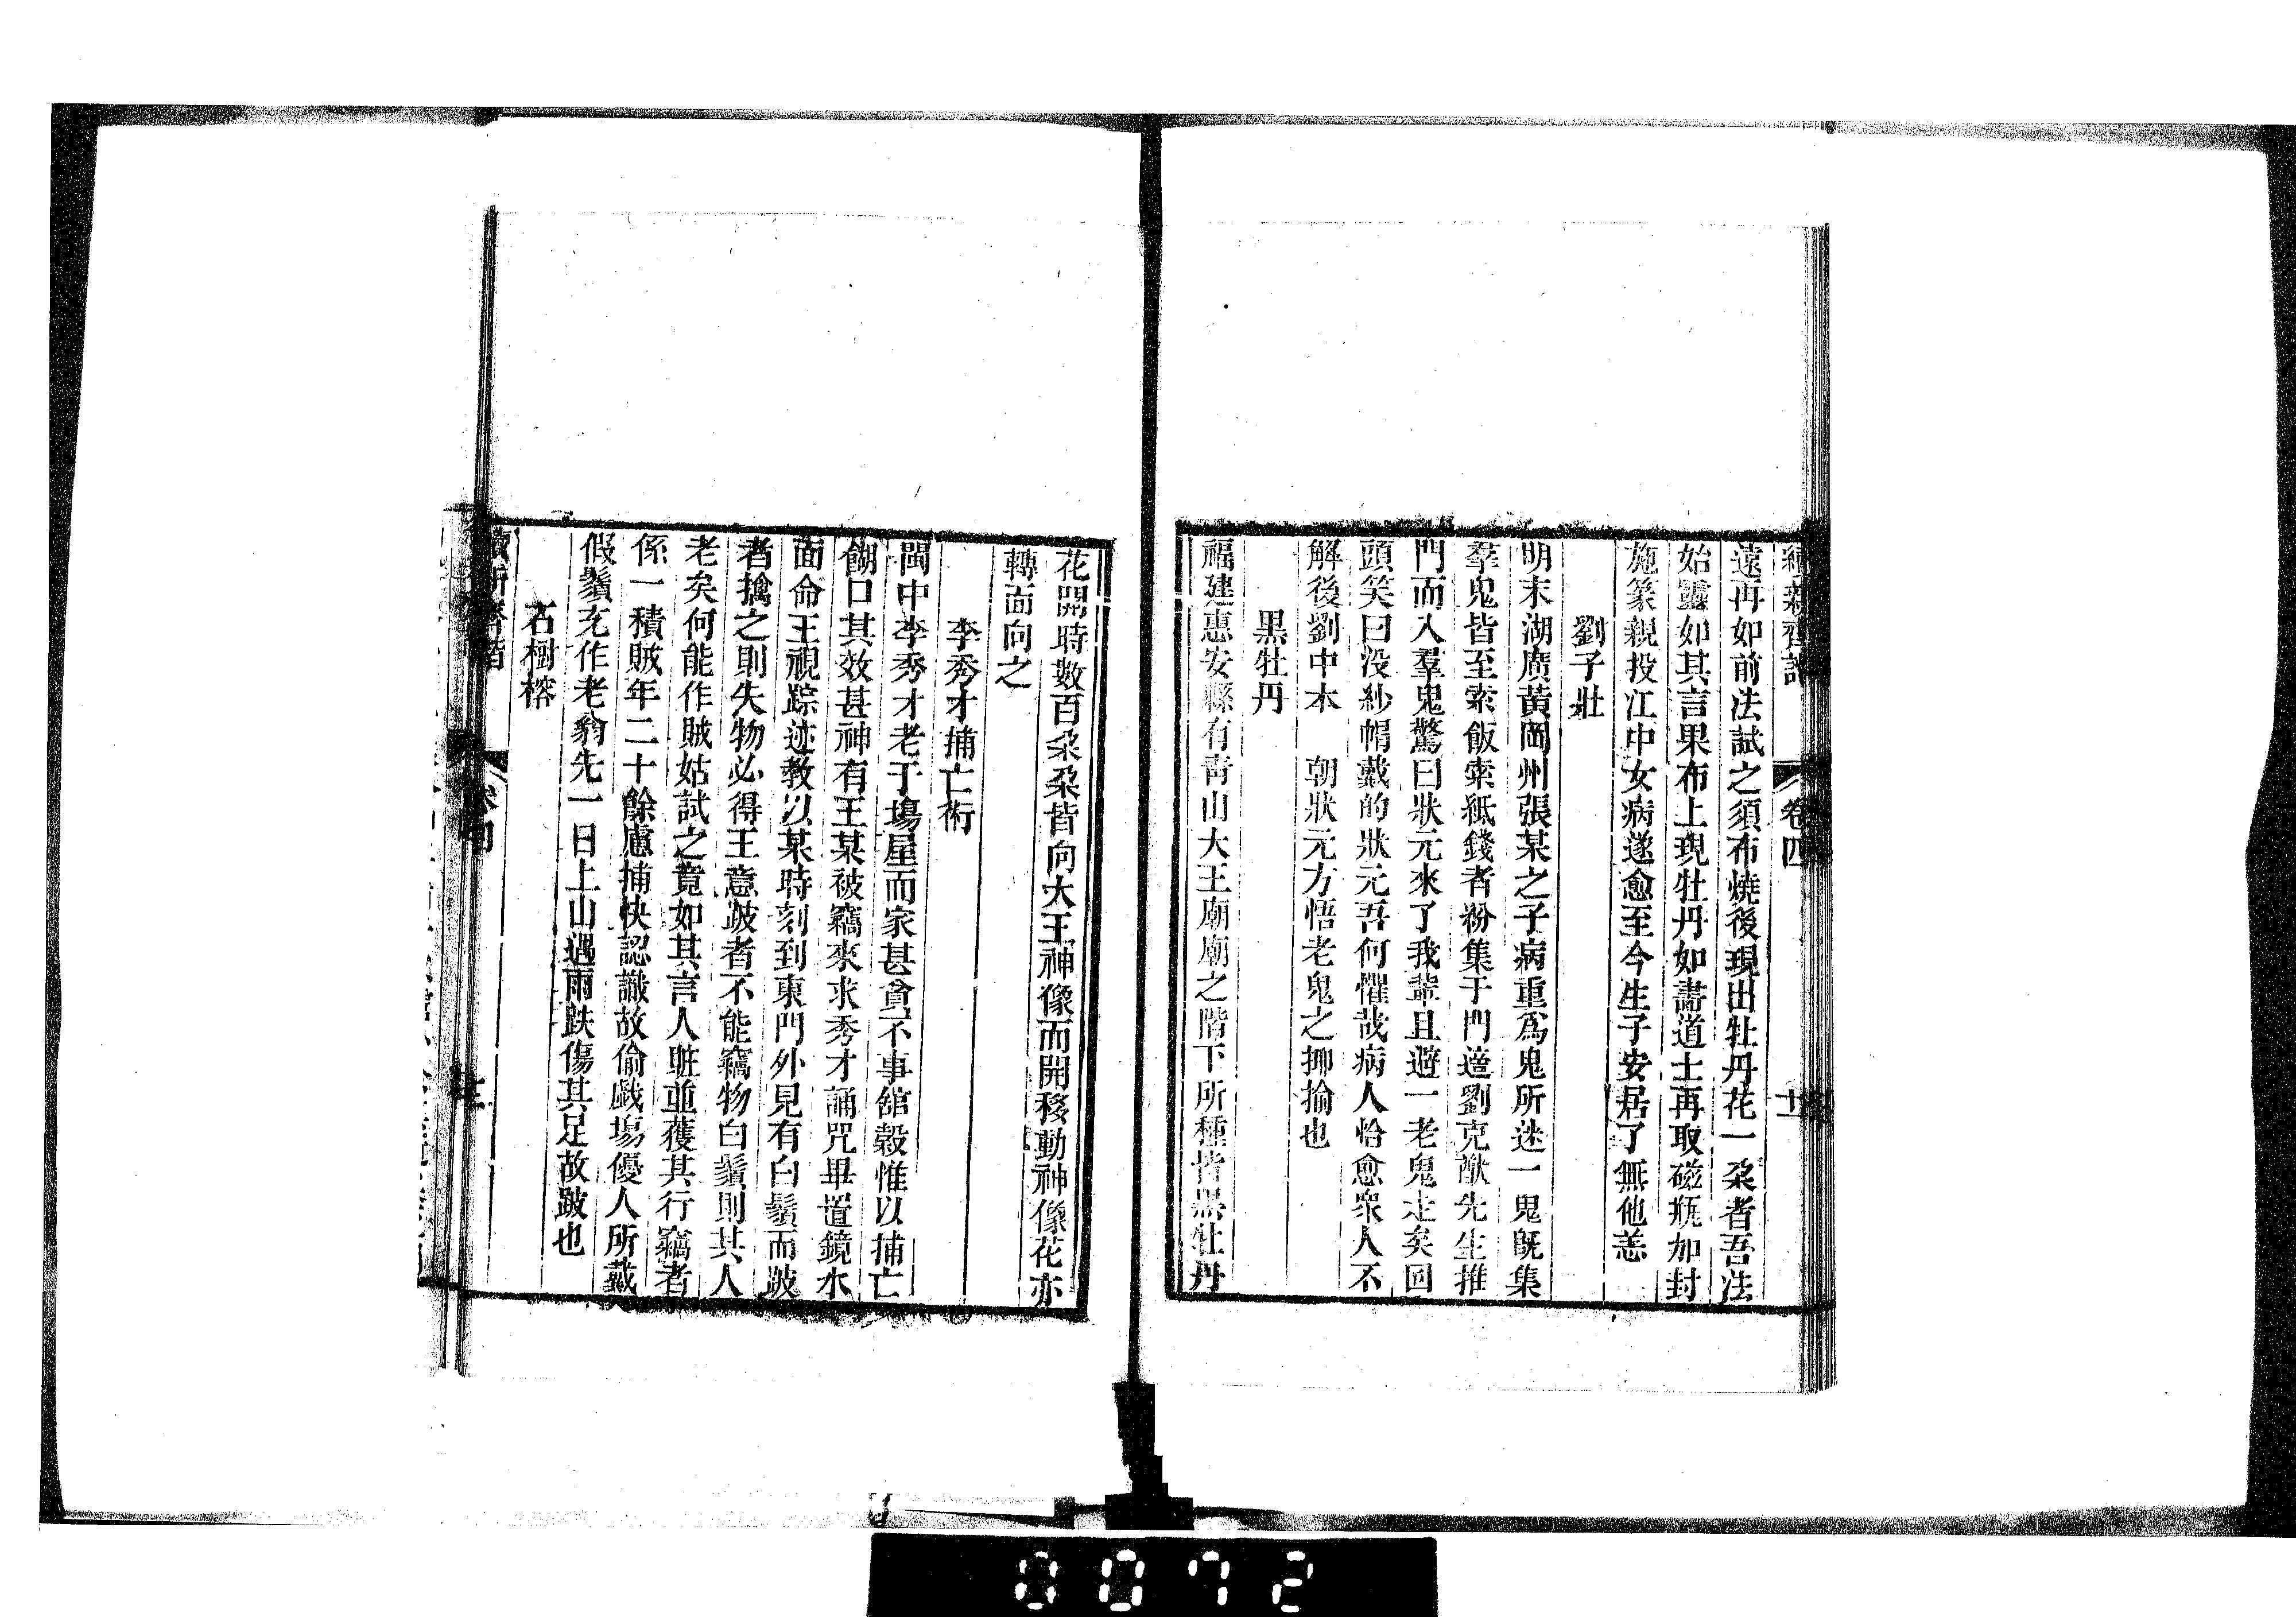 續新齊諧 卷四 十二
遠再如前法試之須布燒後現出牡丹花一朶者吾法
始靈如其言果布上現牡丹如畵道士再取磁瓶加封
施篆親投江中女病遂愈至今生子安居了無他恙
劉子壯
明末湖廣黃岡州張某之子病重爲鬼所迷一鬼旣集
羣鬼皆至索飯索紙錢者粉集于門適劉克猷先生推
門而入羣鬼驚曰狀元來了我輩且避一老鬼走矣回
頭笑曰没紗帽戴的狀元吾何懼哉病人恰愈衆人不
解後劉中本 朝狀元方悟老鬼之揶揄也
黑牡丹
福建惠安縣有青山大王廟廟之階下所種皆黑牡丹
花開時數百朶朶皆向大王神像而開移動神像花亦
轉面向之
李秀才捕亡術
閩中李秀才老于塲屋而家甚貧不事舘穀惟以捕亡
餬口其效甚神有王某被竊來求秀才誦咒畢置鏡水
面命王視踪迹教以某時刻到東門外見有白鬚而跛
者擒之則失物必得王意跛者不能竊物白鬚則其人
老矣何能作賊姑試之竟如其言人賍並獲其行竊者
係一積賊年二十餘慮捕快認識故偷戲塲優人所戴
假鬚充作老翁先一日上山遇雨跌傷其足故跛也
石樹榕
續新齊諧 卷四